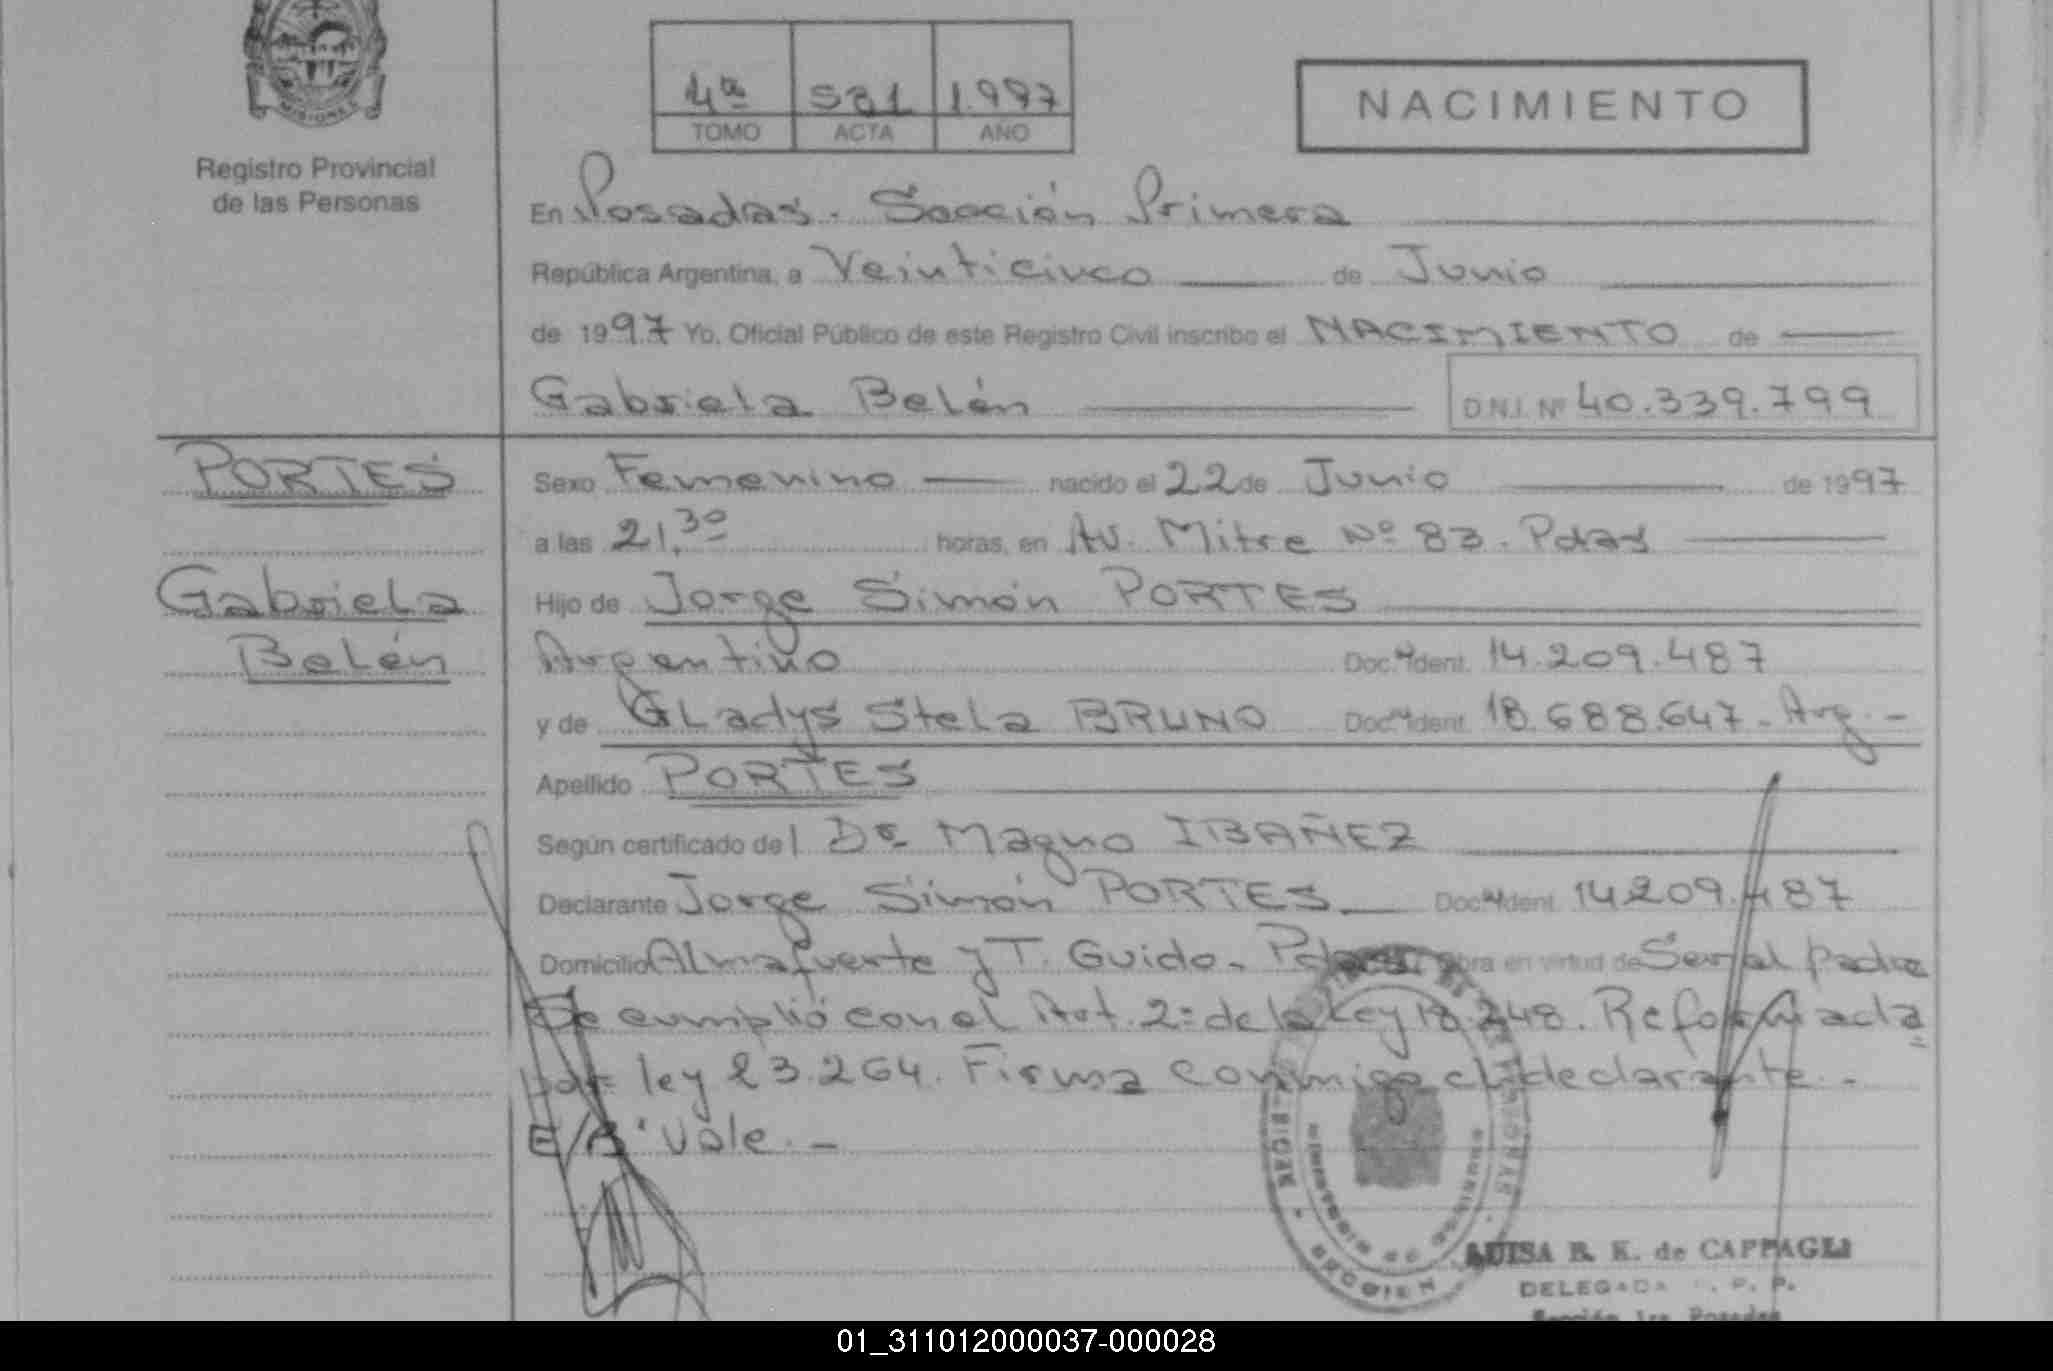 MISIONES
Registro Provincial
de las Personas
4ª 581 1.997
TOMO ACTA AÑO
NACIMIENTO
En Posadas. Sección Primera
República Argentina, a Veinticinco de Junio
de 1997 Yo, Oficial Público de este Registro Civil inscribo el NACIMIENTO de
Gabriela Belén D.N.I. Nº 40.339.799
PORTES
Gabriela
Belén
Sexo Femenino nacido el 22 de Junio de 1997
a las 21,30 horas, en Av. Mitre Nº 83. Pdas
Hijo de Jorge Simón PORTES
Argentino Doc. Ident. 14.209.487
y de GLadys Stela BRUNO Doc. Ident. 18.688.647 - Arg. -
Apellido PORTES
Según certificado del Dr Magno IBAÑEZ
Declarante Jorge Simón PORTES Doc. Ident. 14.209.487
Domicilio Almafuerte y T. Guido - obra en virtud de Ser el padre
Se cumplió con el Art. 2º de la Ley 18.248. Reformada
por ley 23.264. Firma conmigo el declarante. -
E/ Vale. -
LUISA B. K. de CAPPAGLI
DELEGADA R. P. P.
Sección 1ra. Posadas
01_311012000037-000028